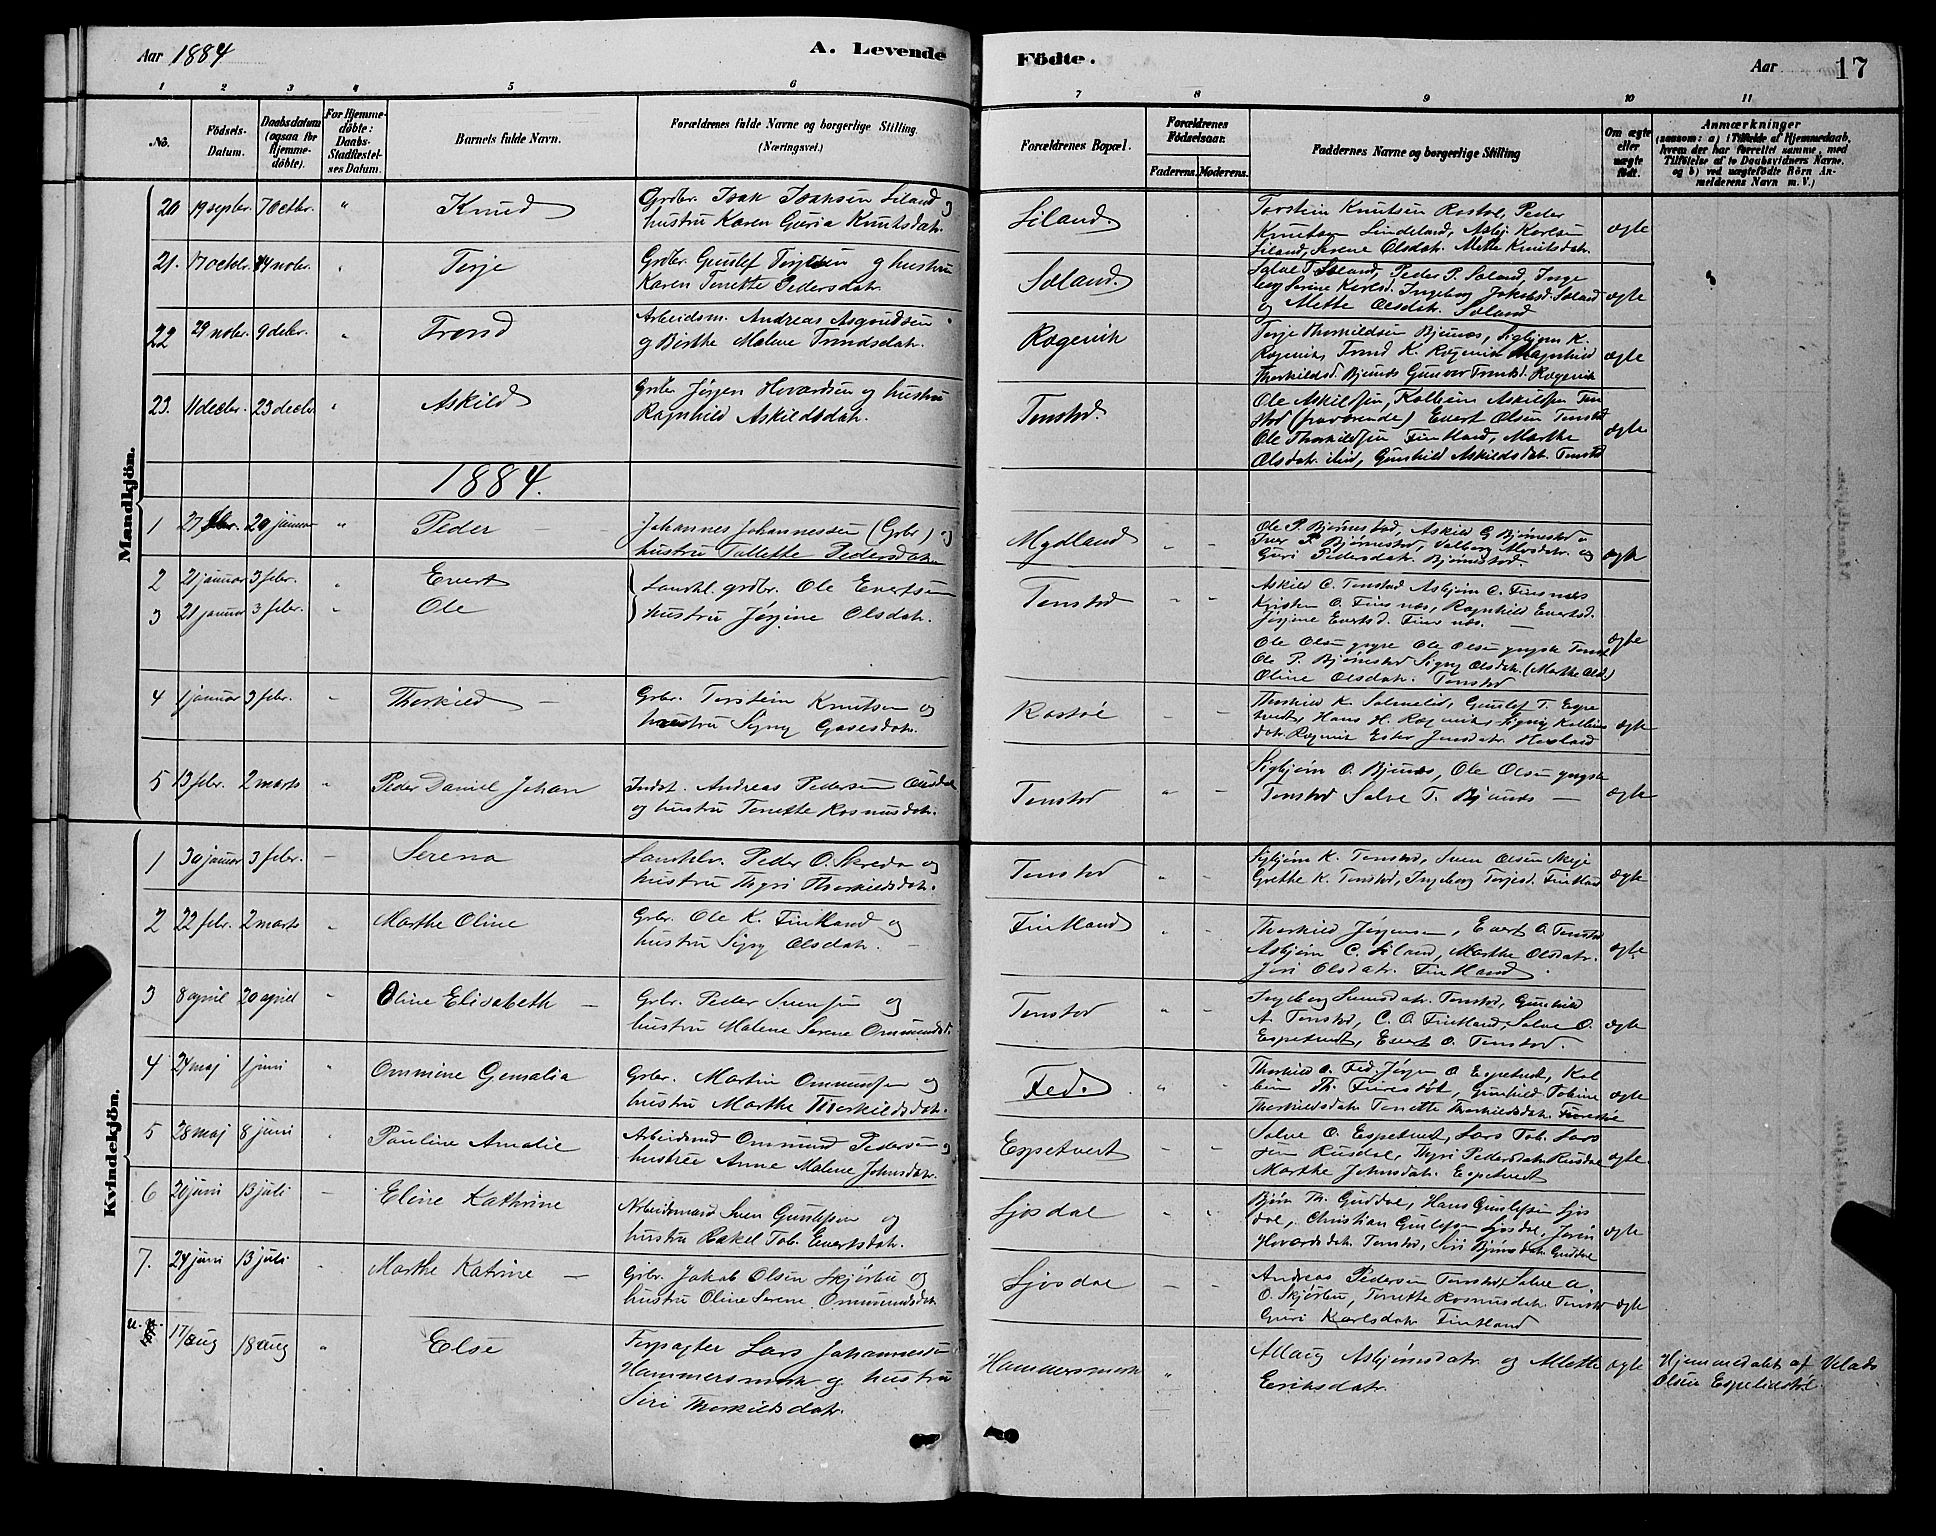 Aar 1884
A. Levende
Födte.
Aar
17
1 2 3 4 5 6 7 8 9 10 11
No.
Födsels-
Datum.
Daabsdatum
(ogsaa for
Hjemme-
döbte).
For Hjemme-
döbte:
Daabs-
Stadfæstel-
ses Datum.
Barnets fulde Navn.
Forældrenes fulde Navne og borgerlige Stilling.
(Næringsvei.)
Forældrenes Bopæl.
Forældrenes
Födselsaar.
Faderens. Moderens.
Faddernes Navne og borgerlige Stilling
Om ægte
eller
uægte
födt.
Anmærkninger
(saasom: a) i Tilfælde af Hjemmedaab,
hvem der har forrettet samme, med
Tilföielse af to Daabsvidners Navne,
og b) ved uægtefödte Börn An-
melderens Navn m. V.)
Mandkjön.
20 19 septbr. 7 octbr. " Knud
Grdbr. Isak Isaksen Liland og
hustru Karen Guria Knutsdatr.
Liland.
Torstein Knutsen Rostøl, Peder
Knutsen Lindeland, Asbj. Karlsen
Liland, Serene Olsdatr. Mette Knutsdatr.
ægte
21. 17 octbr. 14 novbr. " Terje
Grdbr. Gunlef Terjesen og hustru
Karen Tonette Pedersdatr.
Soland.
Salve T. Soland, Peder P. Soland, Inge
borg Serine Karlsd. Ingeborg Jakobsd. Soland
og Mette Olsdatr. Soland
ægte
22 29 novbr. 9 debr. " Trond
Arbeidsm. Andreas Asgoudsen
og Berthe Malene Trondsdatr.
Rogevik
Terje Thorkildsen Bjunes, Sigbjørn K.
Rogevik, Trond K. Rogevik Ragnhild
Thorkildsd. Bjunes Gunvor Trondsd. Rogevik
ægte
23. 11 decbr. 23 decbr. " Askild
Grdbr. Jørgen Hovardsen og hustru
Ragnhild Askildsdatr.
Tonstod.
Ole Askildsen, Kolbein Askildsen Ton
stod (fraværende) Evert Olsen Tonstad
Ole Thorkildsen Fintland, Marthe
Olsdatr. ibid, Gunhild Askildsdatr. Tonstad
ægte
1884.
1 20 januar " Peder
Johannes Johannessen (Grbr) og
hustru Tallette Pedersdatr
Mydland
Ole P. Bjørnestod, Askild G Bjørnestod
Iver P. Bjørnestod, Valborg Alvsdatr. og
Guri Pedersdatr. Bjørnestod.
ægte
2 21 januar 3 febr. " Evert
3 21 januar 3 febr. " Ole
Landhl. grdbr. Ole Evertsen
hustru Jørgine Olsdatr.
Tonstod
Askild O. Tonstad Asbjørn O. Fines næs
Kristen O. Fines næs, Ragnhild Evertsd.
Jørgine Evertsd. Fines næs.
Ole Olsen yngre Ole Olsen yngste Tonst.
Ole P. Bjørnestod Signy Olsdatr. (Marthe Olsd.)
Oline Olsdatr. Tonstod
ægte
4 1 januar 3 febr. Thorkild
Grbr. Torstein Knutsen og
hustru Signy Gasesdatr.
Rostøl
Thorkild K. Salmelid, Gunlef T. Espe
tvedt, Hans H. Rogevik, Signy Kolbeins
datr. Rogevik Ester Jensdatr. Hovland
ægte
5 13 febr. 2 marts " Peder Daniel Johan
Indst. Andreas Pedersen Ousdal
og hustru Tonette Rasmusdatr.
Tonstod
Sigbjørn O. Bjunes, Ole Olsen yngste
Tonstod Salve T. Bjunes
ægte
Kvindekjön.
1 30 januar 3 febr. Serena
Landhlr. Peder O. Skreda og
hustru Thyri Thorkildsdatr.
Tonstod
Sigbjørn K. Tonstod, Sven Olsen Skeje
Grethe K. Tonstod, Ingeborg Terjesd. Fintland
ægte
2 22 febr. 2 marts Marthe Oline
Grbr. Ole K. Fintland og
hustru Signy Olsdatr.
Fintland
Thorkild Jørgensen, Evert O. Tonstad
Asbjørn C. Liland, Marthe Olsdatr.
Jori Olsdatr. Fintland.
ægte
3 8 april 20 april Oline Elisabeth
Grbr. Peder Svensen og
hustru Malene Serene Ommundsd.
Tonstod
Ingeborg Svensdatr. Tonstod, Gunhild
A. Tonstod, C. O. Fintland, Salve O.
Espetvedt, Evert O. Tonstod.
ægte
4 24 maj 1 juni " Ommine Gemalia
Grbr. Martin Ommundsen og
hustru Marthe Thorkildsdatr.
Fed.
Thorkild O. Fed Jørgen O Espetvedt, Kol
bein Th. Finestøl, Gunhild Tobine
Thorkildsdatr. Tonette Thorkildsdatr.
ægte
5 28 maj 8 juni Pauline Amalie
Arbeidsmd Ommund Pedersen og
hustru Anne Malene Johnsdatr.
Espetvedt
Salve O. Espetvedt, Lars Tob. Lars
sen Rusdal, Thyri Pedersdatr. Rusdal
Marthe Johnsdatr. Espetvedt
ægte
6 20 juni 13 juli Eline Kathrine
Arbeidsmand Sven Gunlefsen og
hustru Rakel Tob. Evertsdatr.
Ljosdal
Bjørn Th. Guddal, Hans Gunlefsen Ljos
dal, Christian Gunlefsen Ljosdal, Joren
Hovardsdatr. Tonstad, Siri Bjørnsdatr. Guddal
ægte
7. 24 juni 13 juli Marthe Katrine
Grbr. Jakob Olsen Skjørbu og
hustru Oline Serene Ommundsdatr
Ljosdal
Andreas Pedersen Tonstod, Salve A.
O. Skjørbu, Tonette Rasmusdatr. Tonstod
Guri Karlsdatr Fintland
ægte
17/aug 18 aug " Else
Forpagter Lars Johannessen
Hammersmark og hustru
Siri Thorkildsdatr.
Hammersmark
Allaug Asbjørnsdatr. og Mette
Eriksdatr.
ægte
Hjemmedøbt af Velads
Olsen Espelidstøl.